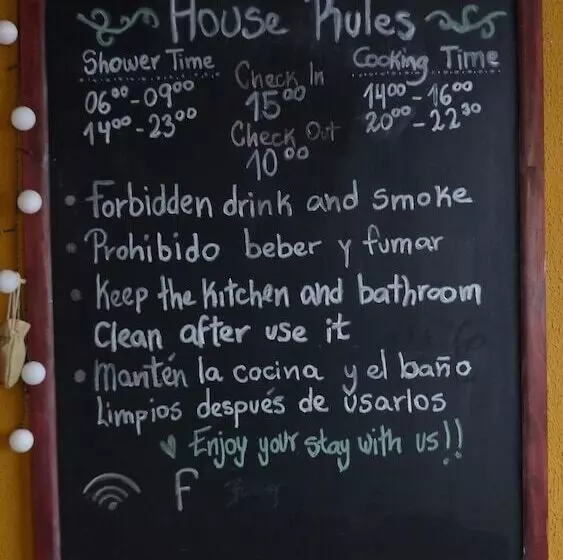 House Rules
Shower Time
06⁰⁰-09⁰⁰
14⁰⁰-23⁰⁰
Check In
15⁰⁰
Check Out
10⁰⁰
Cooking Time
14⁰⁰-16⁰⁰
20⁰⁰-22³⁰
• Forbidden drink and smoke
• Prohibido beber y fumar
• Keep the kitchen and bathroom
Clean after use it
• Mantén la cocina y el baño
Limpios después de usarlos
Enjoy your stay with us!!
F